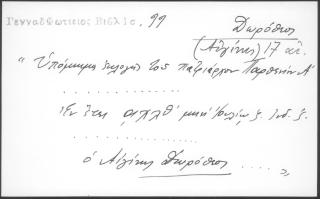 Γενναδ⟨ε⟩ιος Βιβλιο, 99
Δωρόθεος
(Αἰγίνης) 17 αἰ.
"Ὑπόμνημα ἐκλογῆς τοῦ Πατριάρχου Παρθενίου Α'
. . . . . . . . . . . . . . .
Ἐν ἔτει αχλθ' μηνὶ Ἰουλίῳ ζ. Ἰνδ. ζ.
. . . . . . . . . . .
ὁ Αἰγίνης Δωρόθεος . . . . "